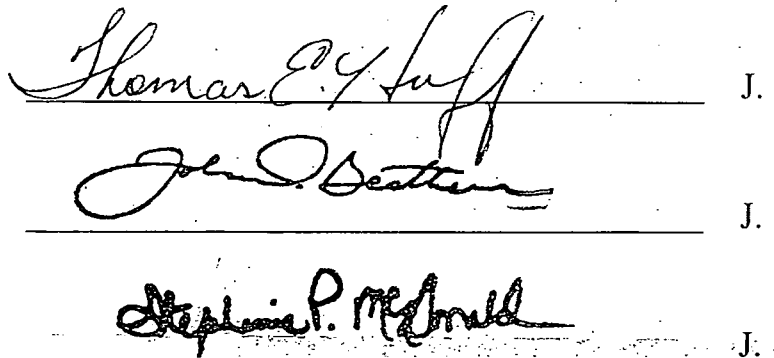 Thomas E. Huff J.
John D. Beatty J.
Stephanie P. McDonald J.